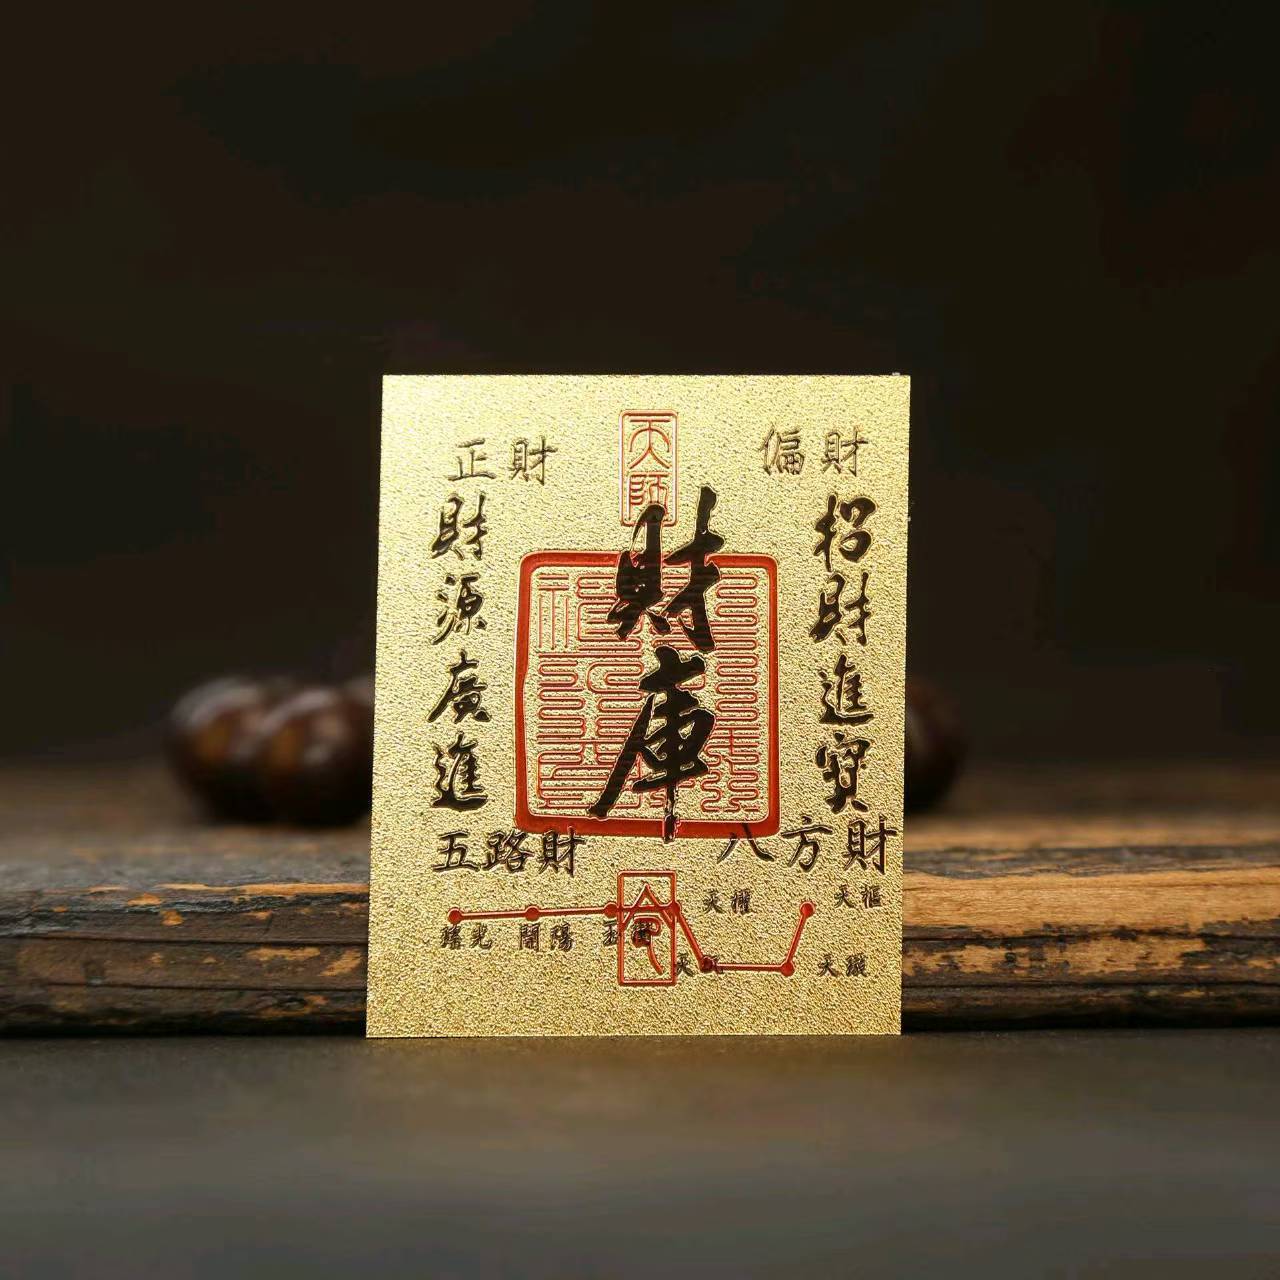 天師
正財
偏財
財源廣進
財庫
招財進寶
五路財
八方財
令
天權
天樞
搖光
開陽
玉衡
天璣
天璇